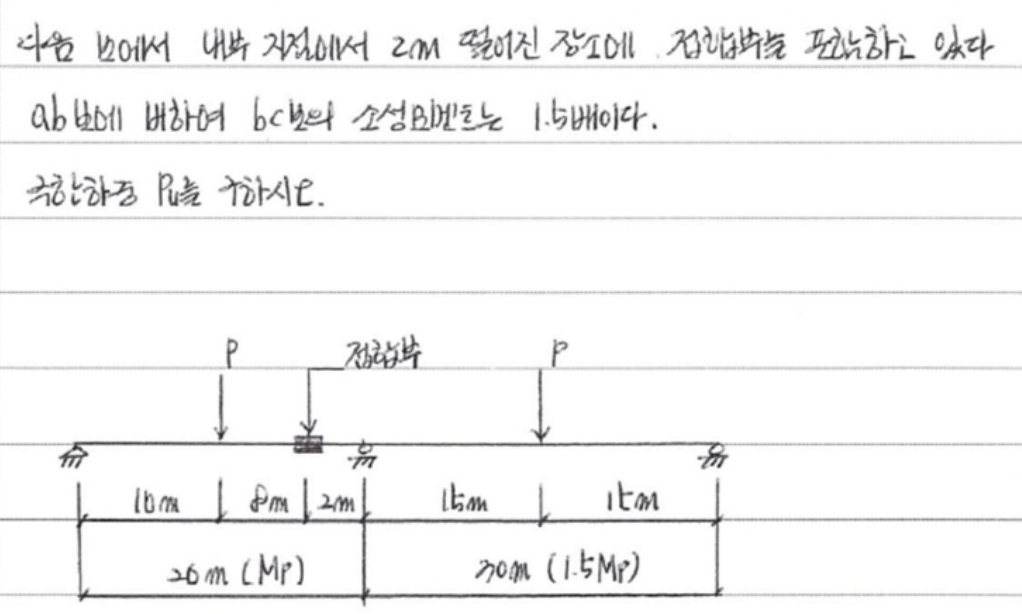 다음 보에서 내부 지점에서 2m 떨어진 장소에 접합부를 포함하고 있다
ab보에 비하여 bc보의 소성모멘트는 1.5배이다.
극한하중 Pu를 구하시오.
P 접합부 P
10m 8m 2m 15m 15m
20m (Mp) 30m (1.5Mp)